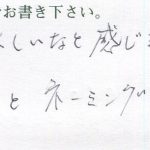 お書き下さい。
しいなと感じ
と ネーミング